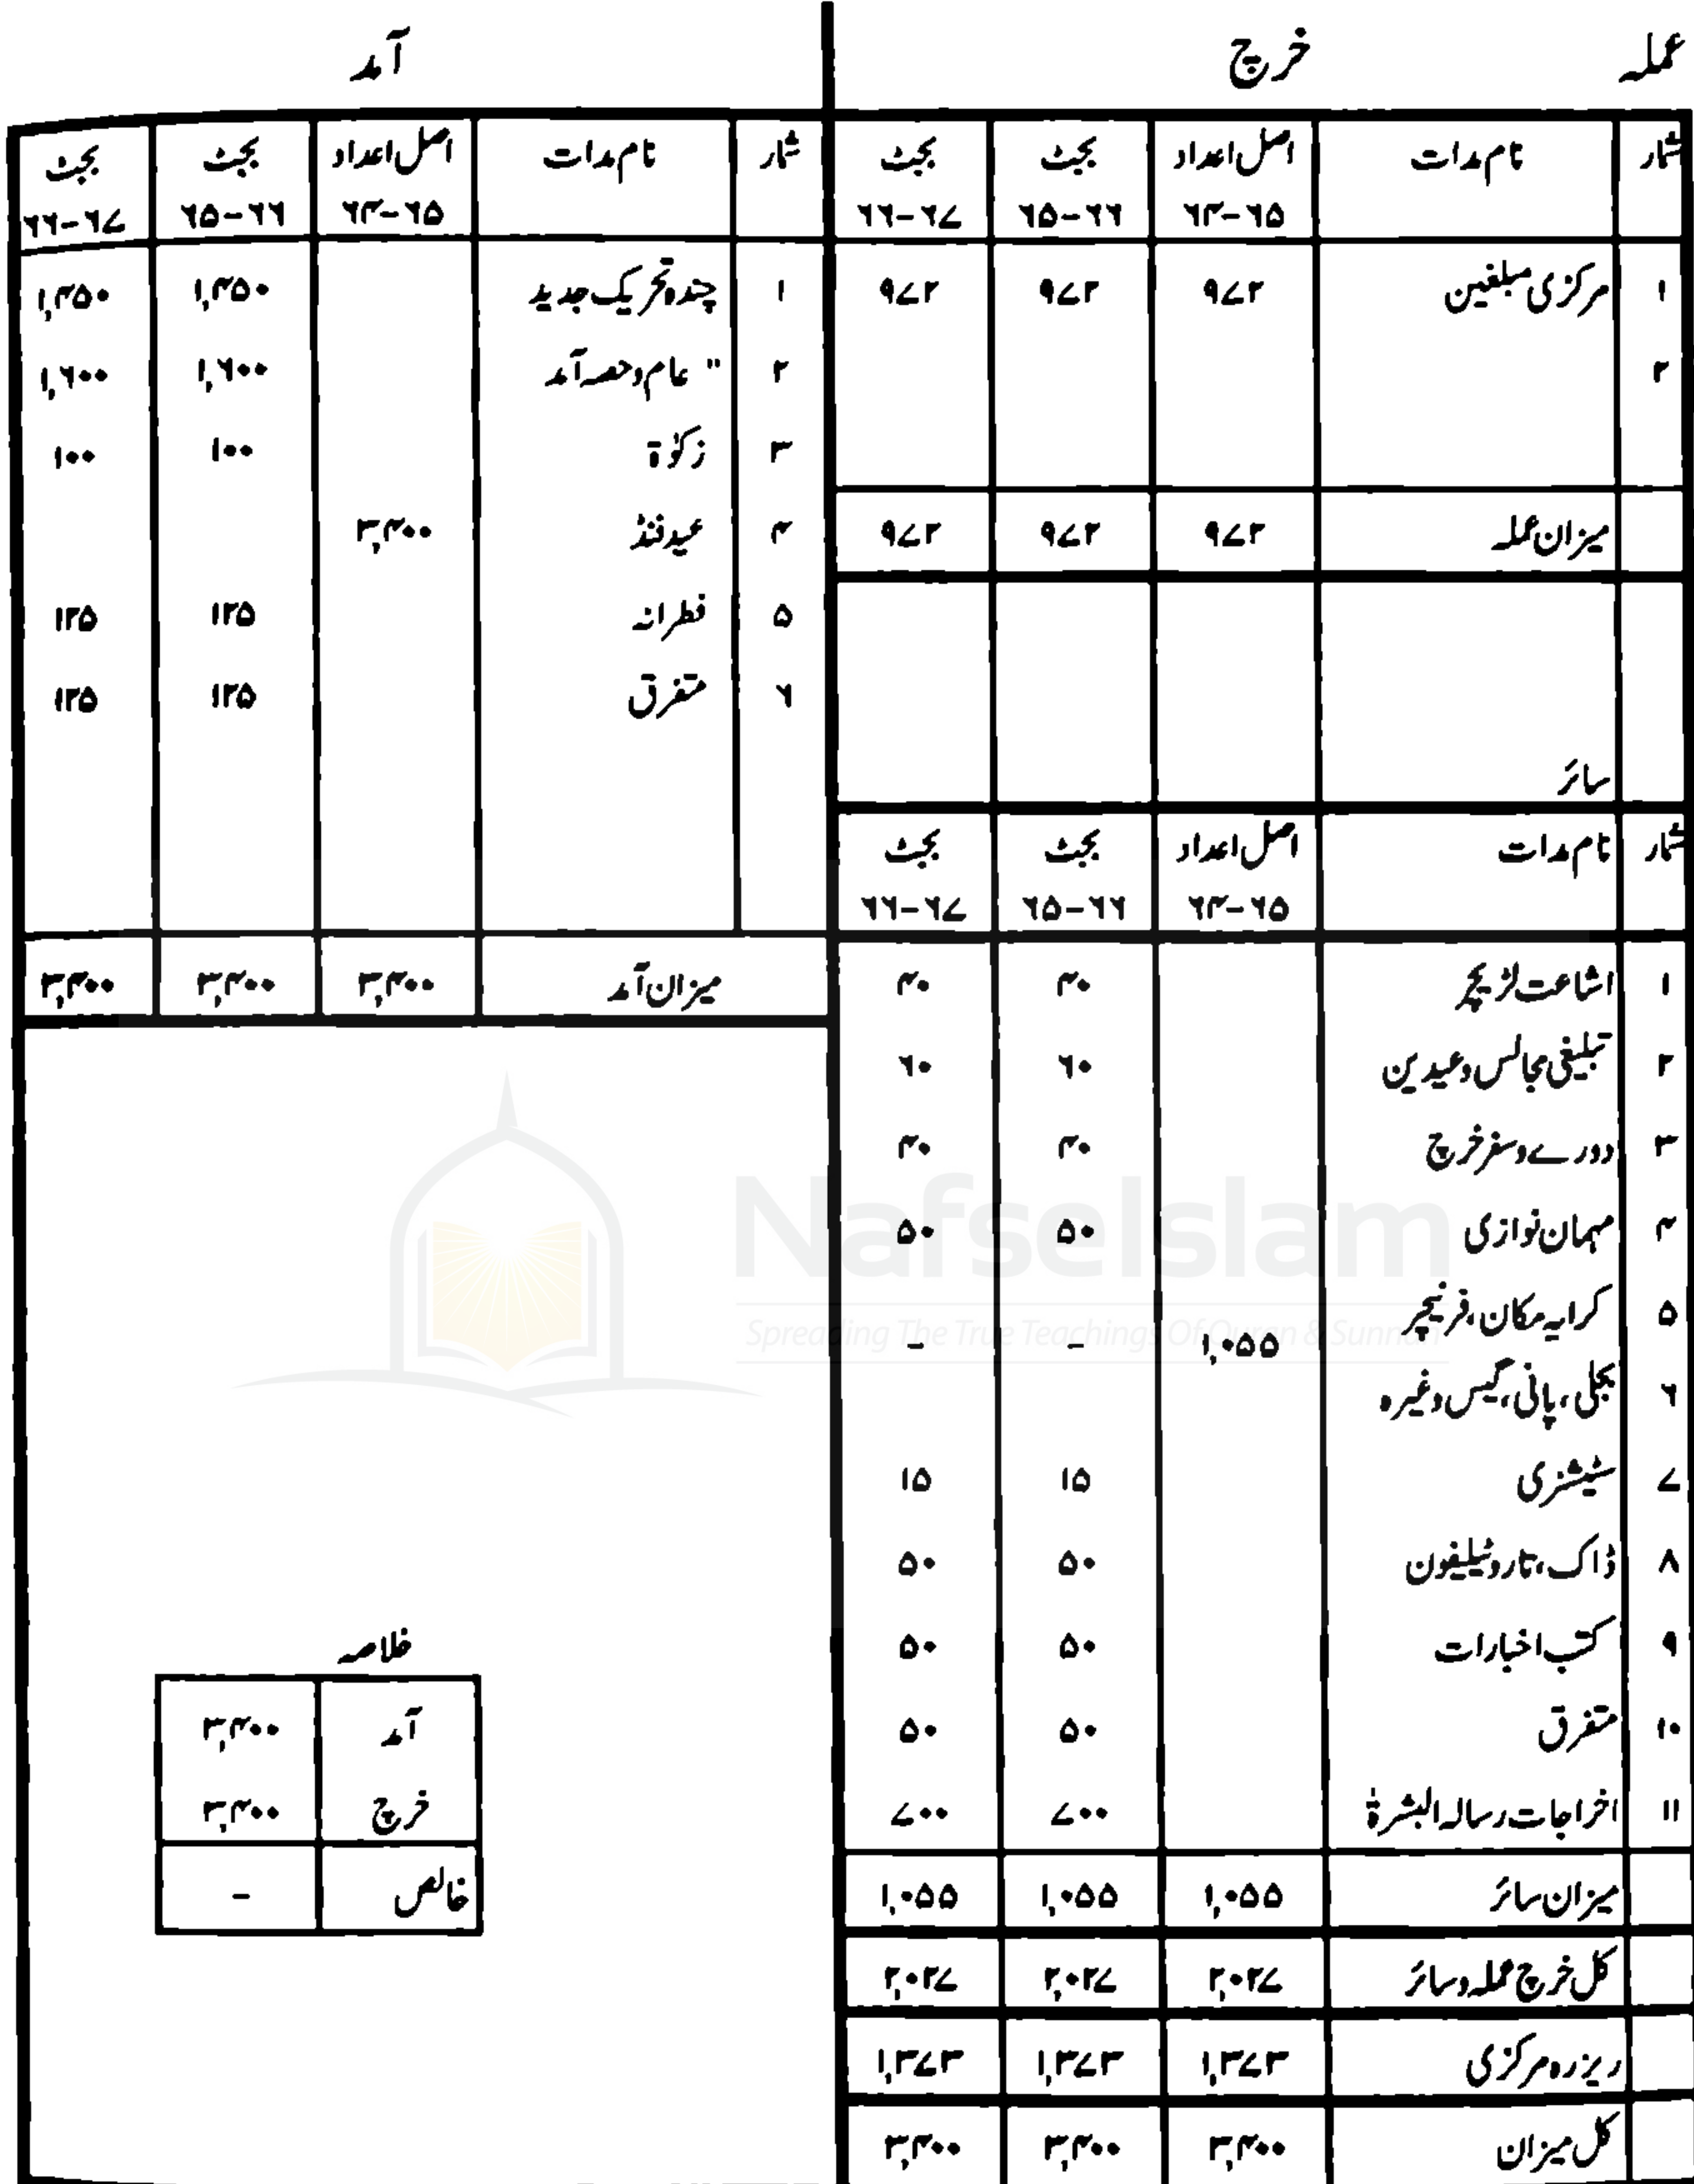 عملہ
خرچ
شمار نام مدات اصل اعداد بجٹ بجٹ
۶۴-۶۵ ۶۵-۶۶ ۶۶-۶۷
۱ مرکزی مبلغین ۹۷۲ ۹۷۲ ۹۷۲
۲
میزان عملہ ۹۷۲ ۹۷۲ ۹۷۲
سائر
شمار نام مدات اصل اعداد بجٹ بجٹ
۶۴-۶۵ ۶۵-۶۶ ۶۶-۶۷
۱ اشاعت لٹریچر ۴۰ ۴۰
۲ تبلیغی مجالس وعیدین ۶۰ ۶۰
۳ دورے وسفر خرچ ۴۰ ۴۰
۴ مہمان نوازی ۵۰ ۵۰
۵ کرایہ مکان، فرنیچر
۱,۰۵۵ - -
۶ بجلی، پانی، گیس وغیرہ
۷ سٹیشنری ۱۵ ۱۵
۸ ڈاک، تار وٹیلیفون ۵۰ ۵۰
۹ کتب اخبارات ۵۰ ۵۰
۱۰ متفرق ۵۰ ۵۰
۱۱ اخراجات رسالہ البشرۃ ۷۰۰ ۷۰۰
میزان سائر ۱,۰۵۵ ۱,۰۵۵ ۱,۰۵۵
کل خرچ عملہ وسائر ۲,۰۲۷ ۲,۰۲۷ ۲,۰۲۷
ریزرو مرکزی ۱,۳۷۳ ۱,۳۷۳ ۱,۳۷۳
کل میزان ۳,۴۰۰ ۳,۴۰۰ ۳,۴۰۰
آمد
شمار نام مدات اصل اعداد بجٹ بجٹ
۶۴-۶۵ ۶۵-۶۶ ۶۶-۶۷
۱ چندہ تحریک جدید ۱,۴۵۰ ۱,۴۵۰
۲ " عام وحصہ آمد ۱,۶۰۰ ۱,۶۰۰
۳ زکوٰۃ ۱۰۰ ۱۰۰
۴ عید فنڈ ۳,۴۰۰
۵ فطرانہ ۱۲۵ ۱۲۵
۶ متفرق ۱۲۵ ۱۲۵
میزان آمد ۳,۴۰۰ ۳,۴۰۰ ۳,۴۰۰
خلاصہ
آمد ۳,۴۰۰
خرچ ۳,۴۰۰
خالص -
NafseIslam
Spreading The True Teachings Of Quran & Sunnah